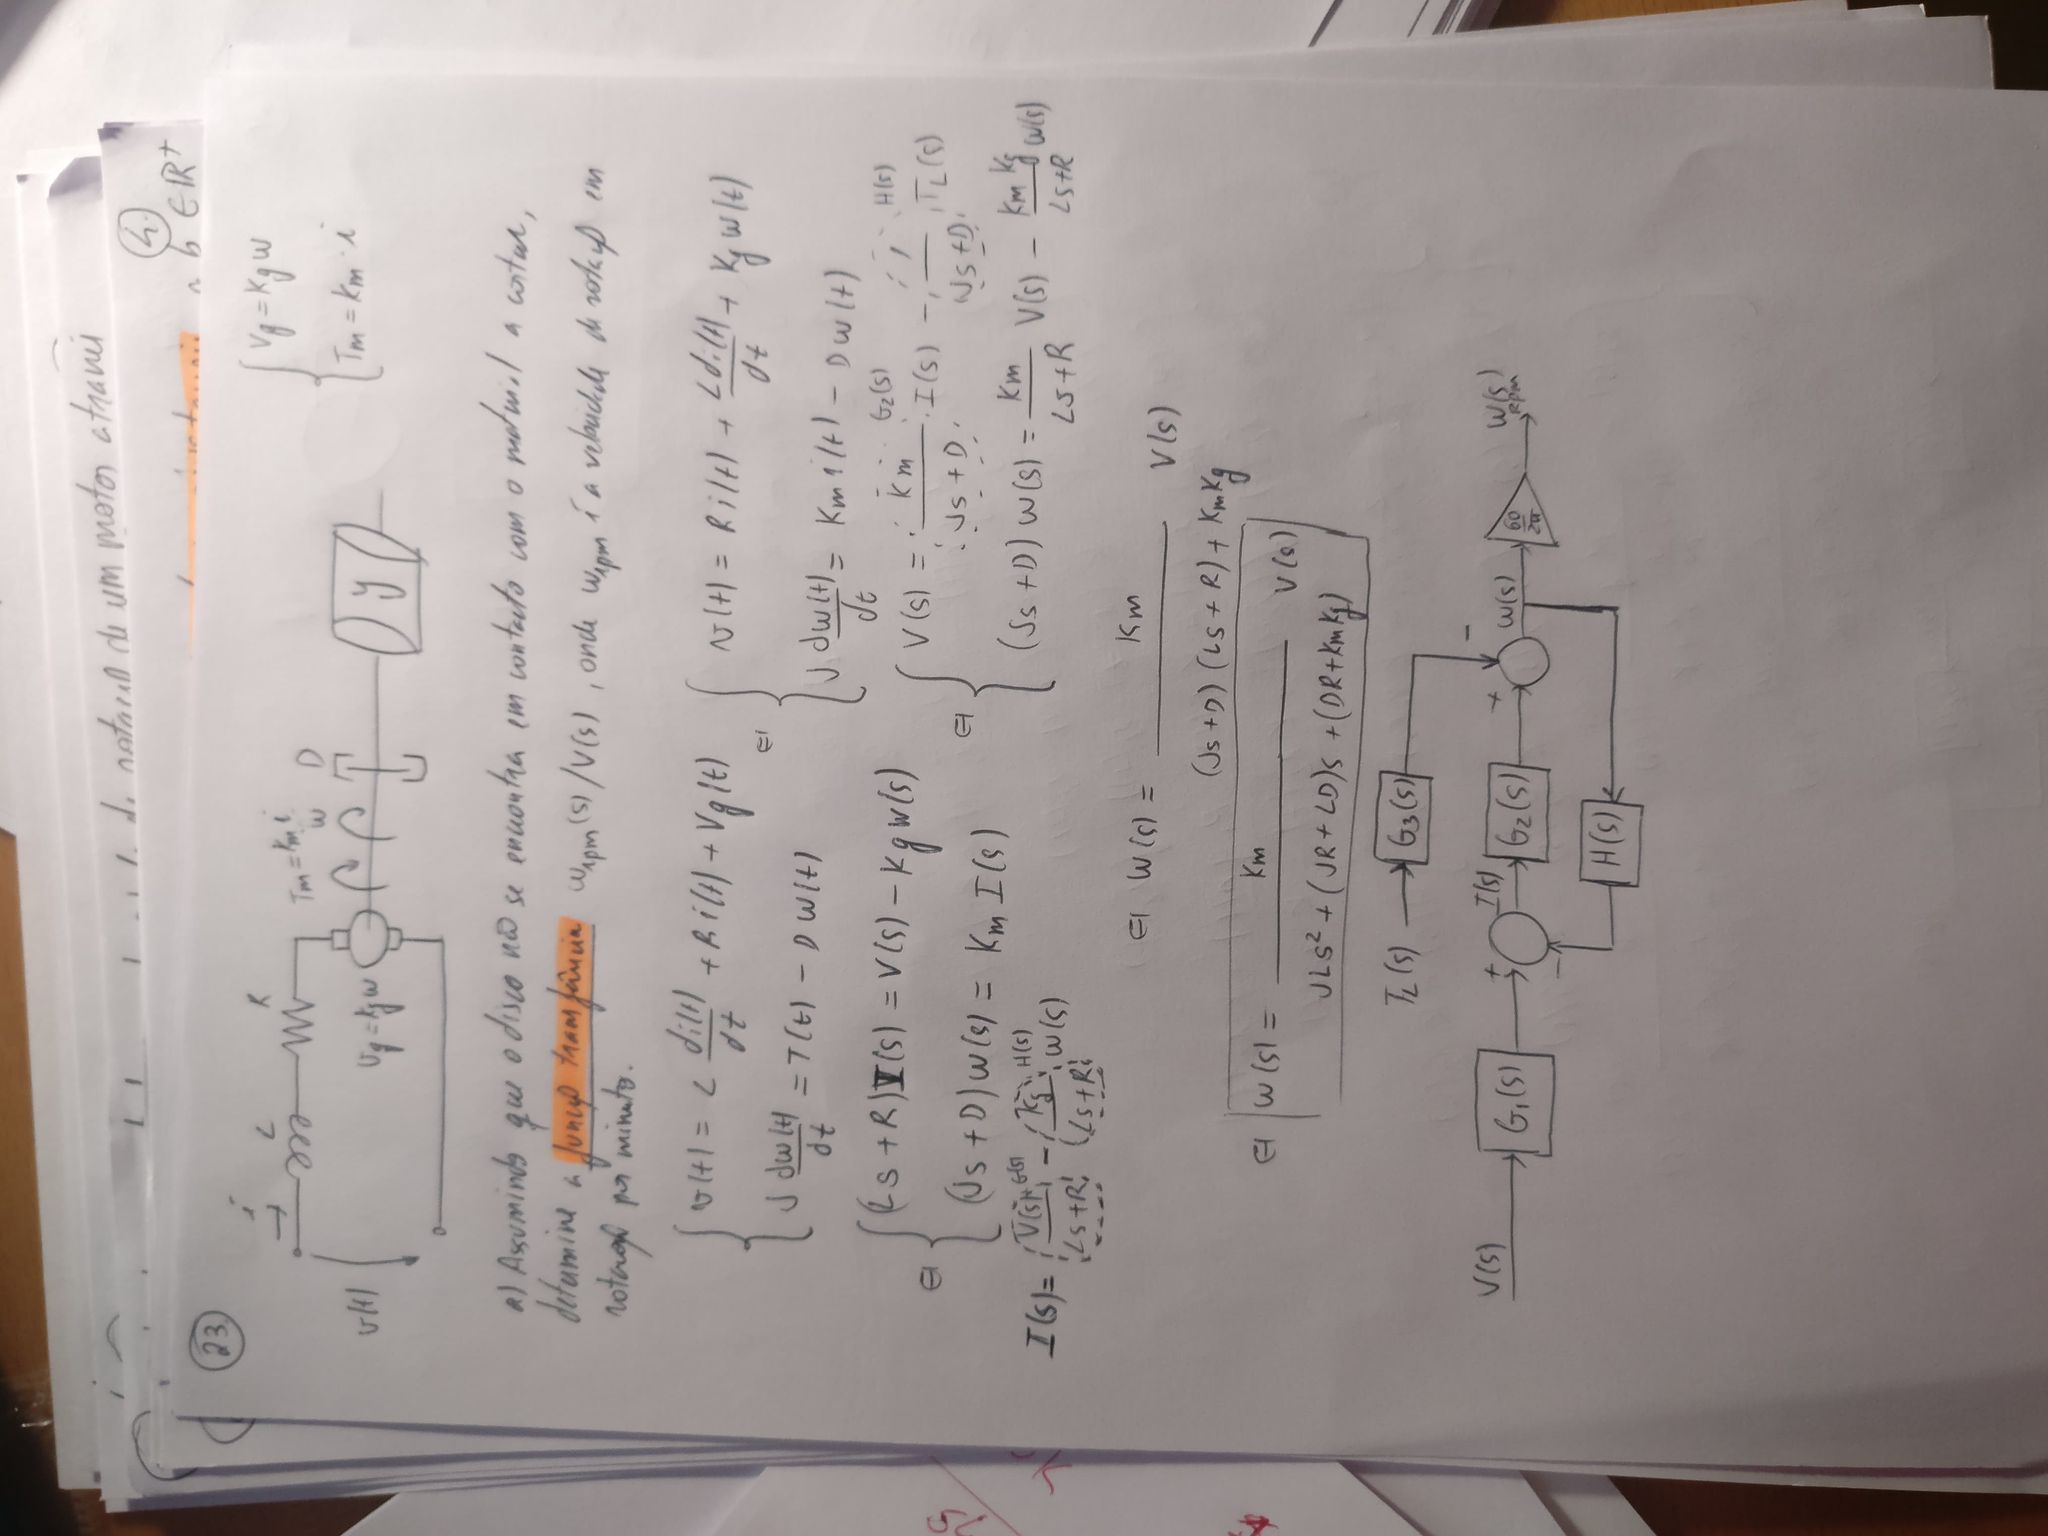 de um motor atravéi
4.
b ∈ IR⁺
23.
i
L
R
v(t)
Vg = Kg w
Tm = Km i
w
D
y
{ Vg = Kg w
Tm = Km · i
a) Assumindo que o disco não se encontra em contacto com o material a cortar,
determine a função transferência wrpm(s)/V(s), onde wrpm é a velocidade de rotação em
rotação por minuto.
{ v(t) = L di(t)/dt + R i(t) + Vg(t)
J dw(t)/dt = T(t) - D w(t)
⇔ { v(t) = R i(t) + L di(t)/dt + Kg w(t)
J dw(t)/dt = Km i(t) - D w(t)
⇔ { (Ls + R) I(s) = V(s) - Kg w(s)
(Js + D) w(s) = Km I(s)
⇔ { V(s) = Km/(Js + D) G2(s) · I(s) - 1/(Js + D) H(s) TL(s)
(Js + D) w(s) = Km/(Ls+R) V(s) - Km Kg/(Ls+R) w(s)
I(s) = V(s)/(Ls+R) G(s) - Kg/(Ls+R) H(s) w(s)
⇔ W(s) = Km/((Js + D)(Ls + R) + Km Kg) V(s)
⇔ W(s) = Km/(JLs² + (JR + LD)s + (DR + Km Kg)) V(s)
TL(s)
G3(s)
-
V(s)
G1(s)
+
-
I(s)
G2(s)
+
w(s)
60/2π
W(s)
Rpm
H(s)